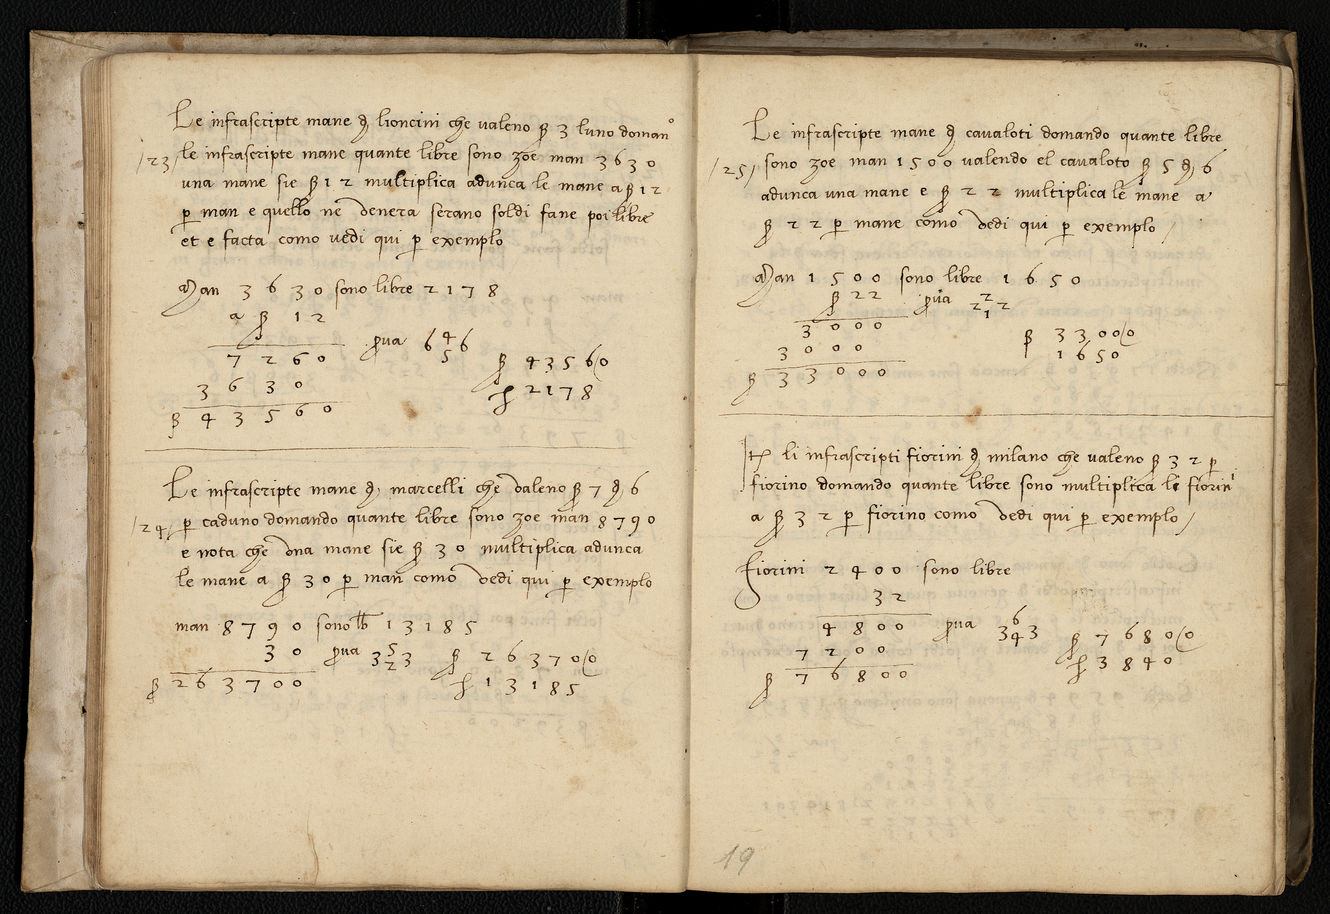 Le infrascripte mane d lioncini che valeno ß 3 luno doman°
/23/ le infrascripte mane quante libre sono zoe man 3630
una mane sie ß 12 multiplica adunca le mane a ß 12
p man e quello ne venera serano soldi fane poi libre
et e facta como vedi qui p exemplo
Man 3630 sono libre 2178
a ß 12
7260 prova 6 4 6
5
ß 43560
3630 £ 2178
ß 43560
Le infrascripte mane d marcelli che valeno ß 7 d 6
/24/ p caduno domando quante libre sono zoe man 8790
e nota che una mane sie ß 30 multiplica adunca
le mane a ß 30 p man como vedi qui p exemplo
man 8790 sono lb 13185
30 prova 3 5 3 ß 263700
2
ß 263700 £ 13185
Le infrascripte mane d cavaloti domando quante libre
/25/ sono zoe man 1500 valendo el cavaloto ß 5 d 6
adunca una mane e ß 22 multiplica le mane a
ß 22 p mane como vedi qui p exemplo /
Man 1500 sono libre 1650
ß 22 prova 2 2 2
1
3000 ß 33000
3000 1650
ß 33000
It li infrascripti fiorini d milano che valeno ß 32 p
fiorino domando quante libre sono multiplica li fiorini
a ß 32 p fiorino como vedi qui p exemplo /
fiorini 2400 sono libre
32
4800 prova 3 6 3
4
ß 76800
7200 £ 3840
ß 76800
19